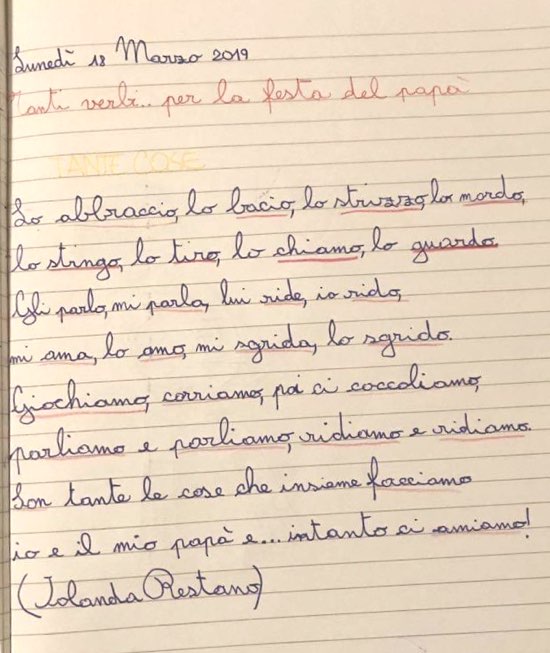 Lunedì 18 Marzo 2019
Tanti verbi... per la festa del papà
TANTE COSE
Lo abbraccio, lo bacio, lo strizzo, lo mordo,
lo stringo, lo tiro, lo chiamo, lo guardo.
Gli parlo, mi parla, lui ride, io rido,
mi ama, lo amo, mi sgrida, lo sgrido.
Giochiamo, corriamo, poi ci coccoliamo,
parliamo e parliamo, ridiamo e ridiamo.
Son tante le cose che insieme facciamo
io e il mio papà e... intanto ci amiamo!
(Jolanda Restano)